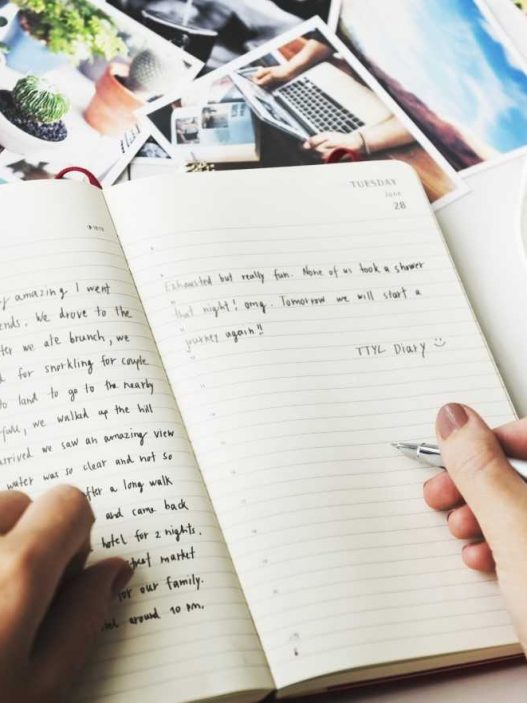 y amazing I went
ends. We drove to the
ter we ate brunch, we
d for snorkling for couple
to land to go to the nearby
we walked up the hill
arrived we saw an amazing view
water was so clear and not so
after a long walk
and came back
hotel for 2 nights.
market
for our family.
around 10 pm.
TUESDAY
June
28
Exhausted but really fun. None of us took a shower
that night! omg. Tomorrow we will start a
journey again!!
TTYL Diary